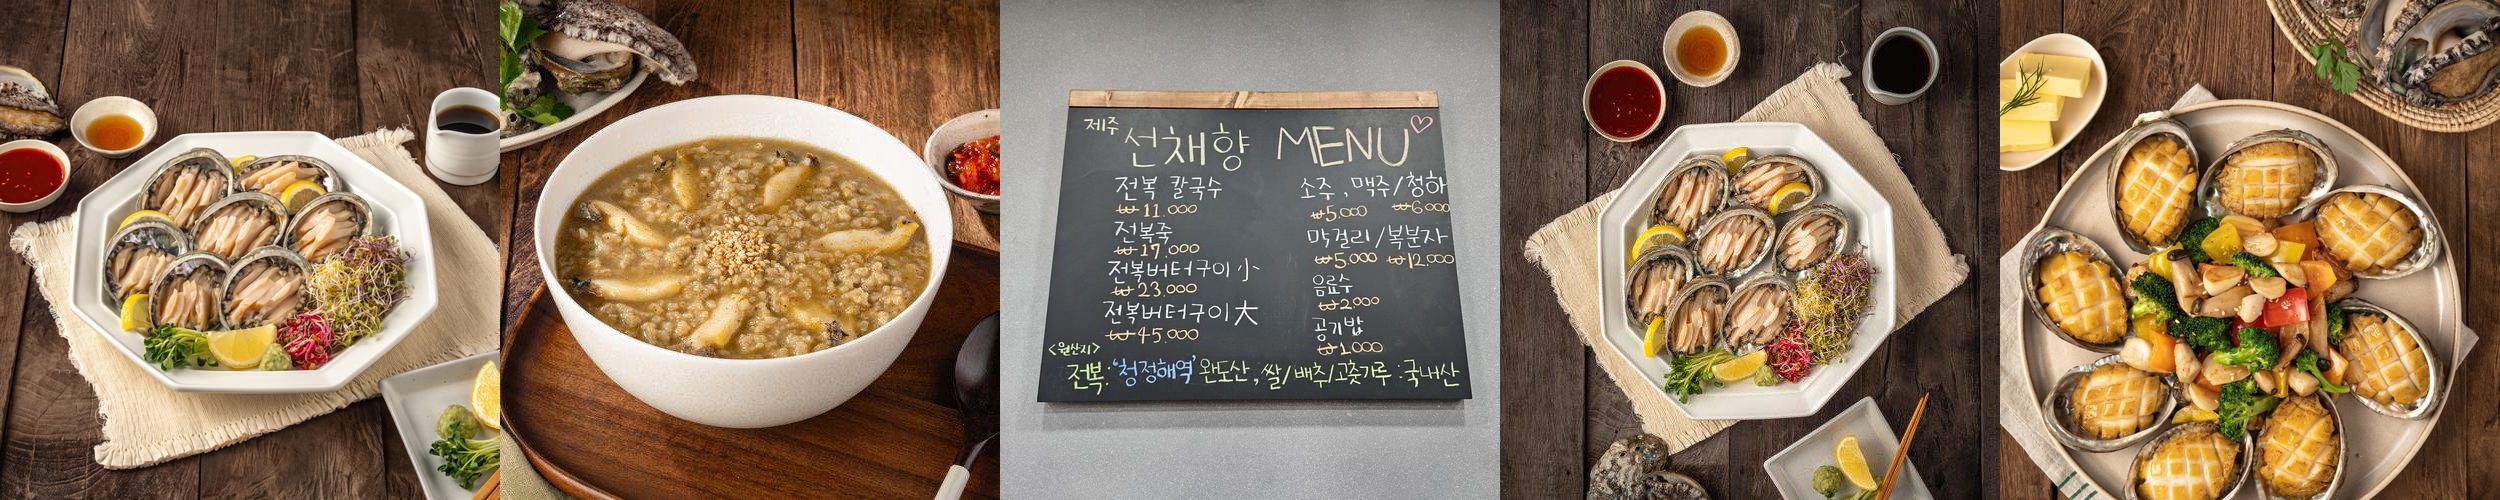 제주 선채향 MENU
전복 칼국수
₩ 11.000
전복죽
₩ 17.000
전복버터구이 小
₩ 23.000
전복버터구이 大
₩ 45.000
소주, 맥주/청하
₩5.000 ₩6.000
막걸리/복분자
₩5.000 ₩12.000
음료수
₩2000
공기밥
₩1000
<원산지>
전복:'청정해역' 완도산, 쌀/배추/고춧가루:국내산